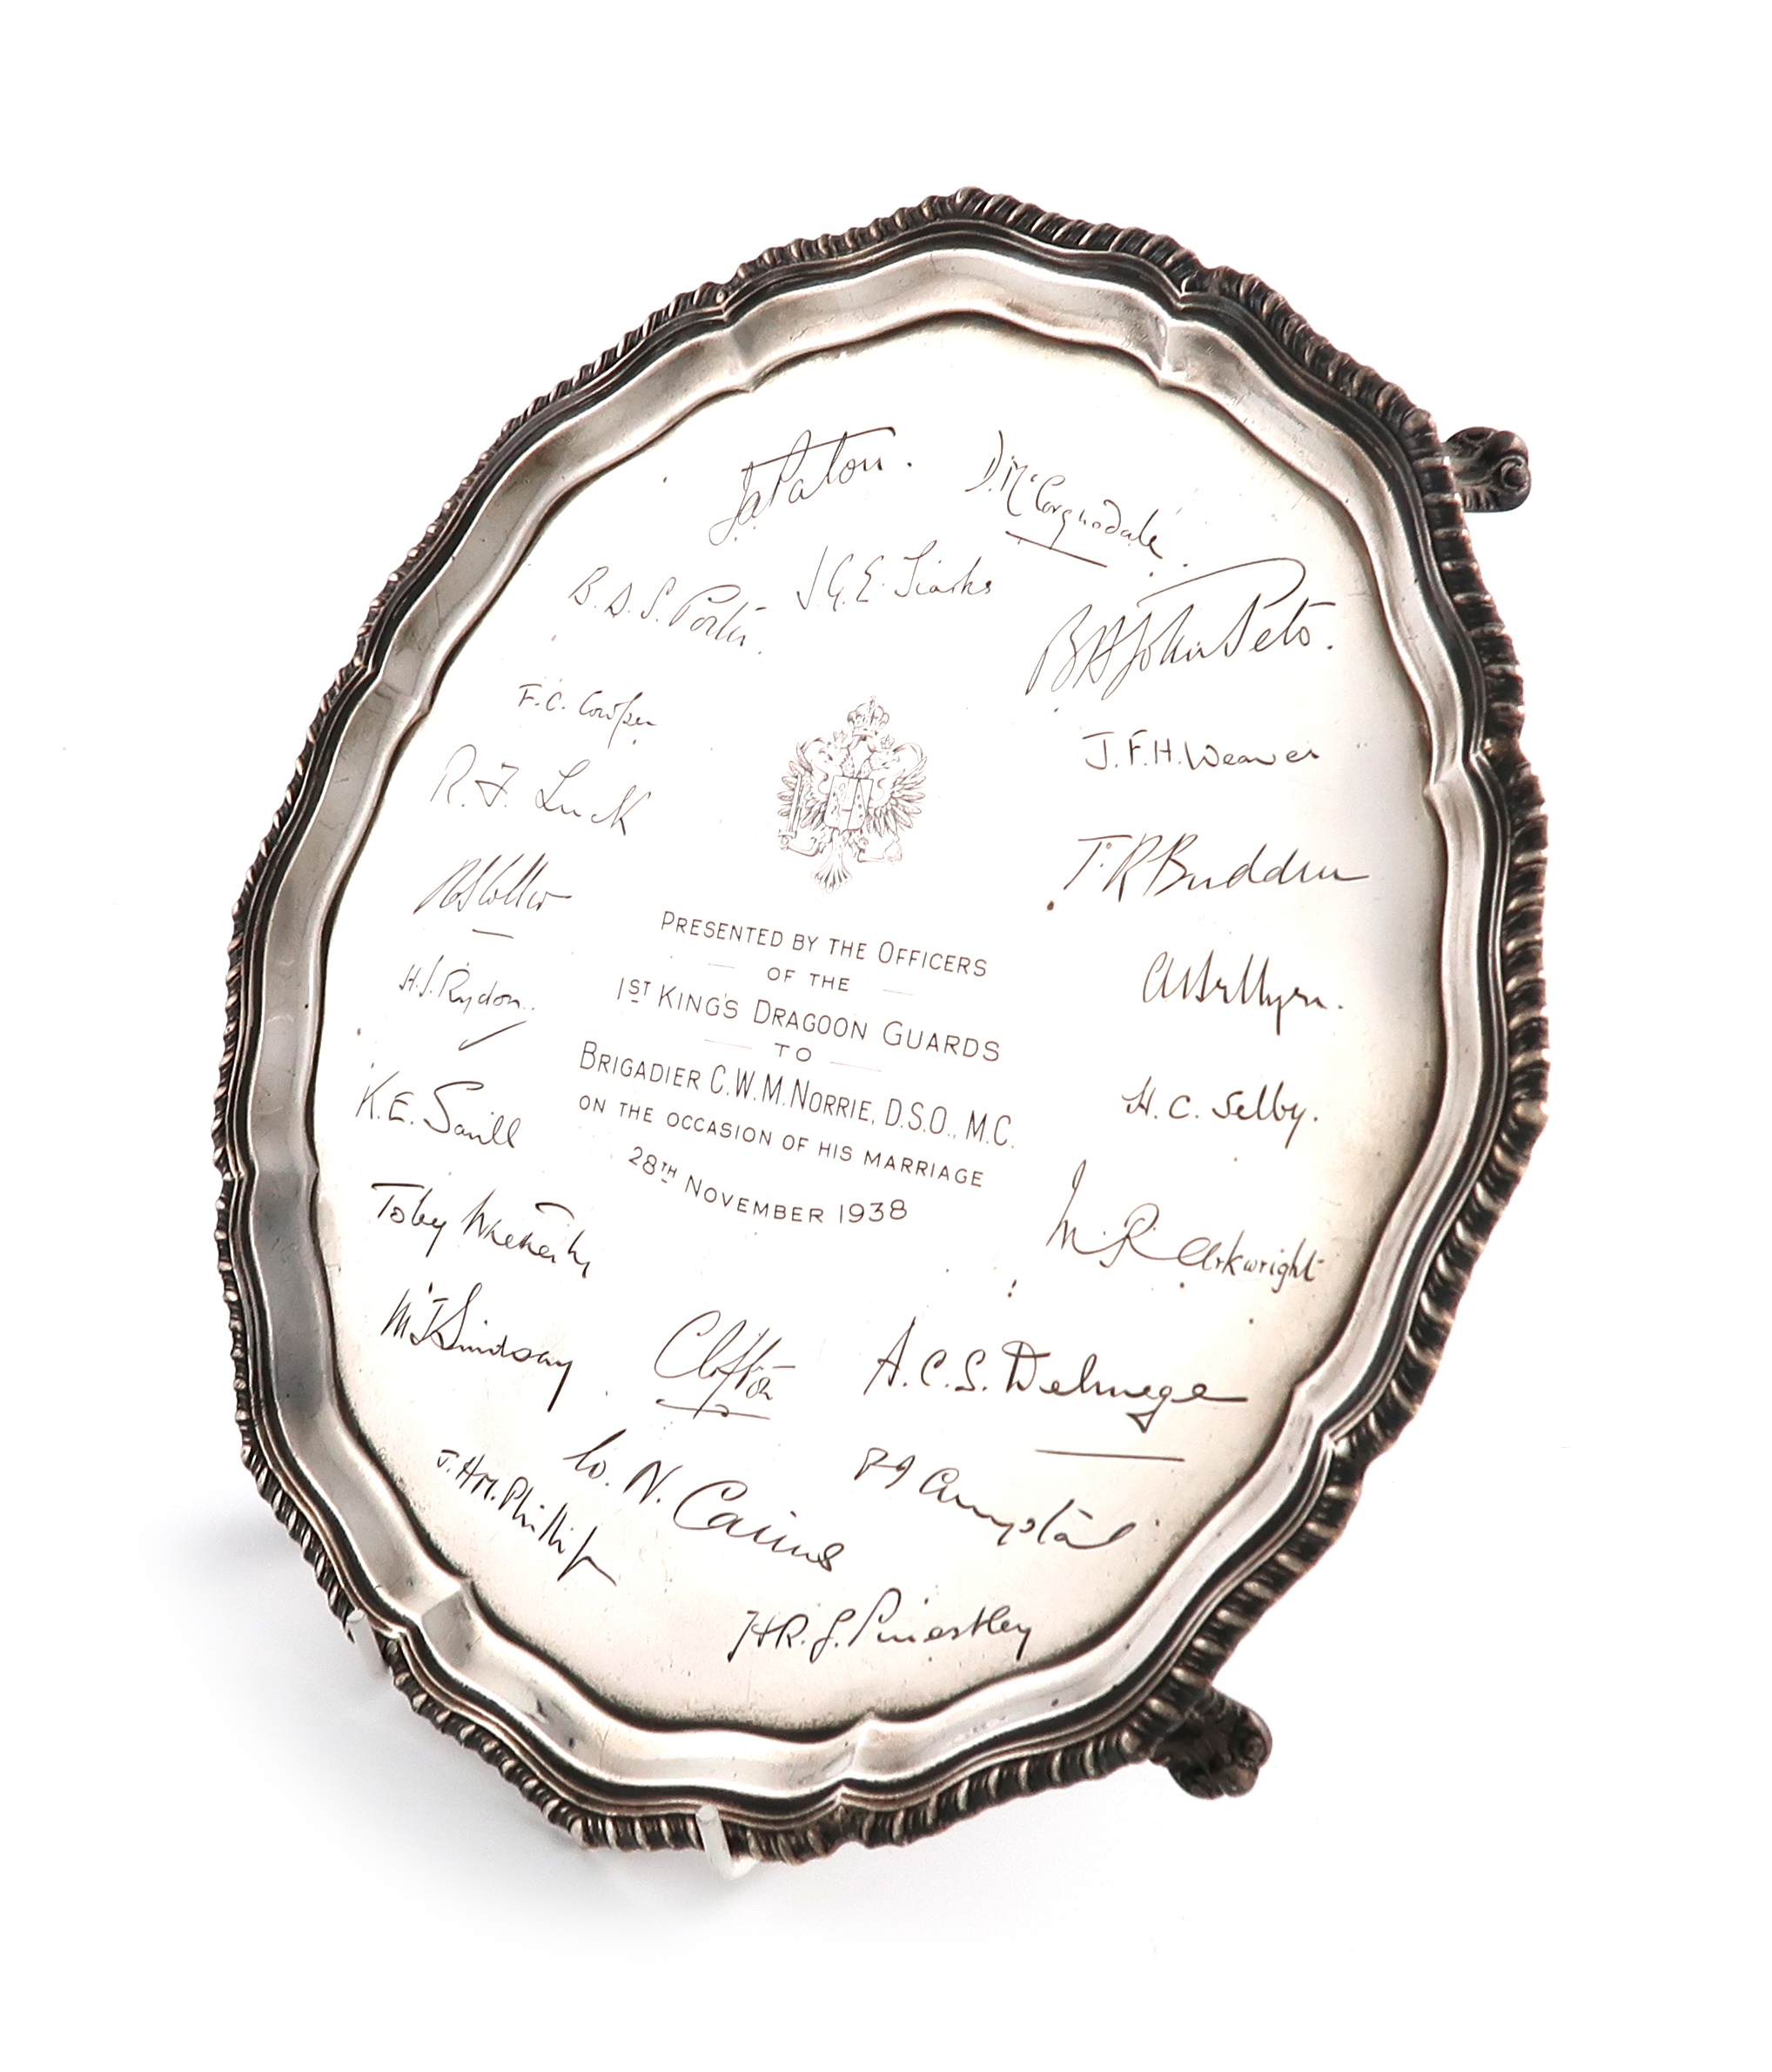 J.A. Paton.
D. McCorquodale
B.D.S. Porter.
J.G.E. Tiarks
B A John Peto.
F.C. Cowper
J.F.H. Weaver
R. J. Luck
T. R Budden
PRESENTED BY THE OFFICERS
OF THE
1ST KING'S DRAGOON GUARDS
TO
BRIGADIER C.W.M. NORRIE, D.S.O., M.C.
ON THE OCCASION OF HIS MARRIAGE
28TH NOVEMBER 1938
H.S. Rydon.
K.E. Savill
H.C. Selby.
Toby
M. R Arkwright
Lindsay
Clifton
A.C.S. Delmege
W. N. Cairns
J.H.M. Phillips
H.R.G. Priestley